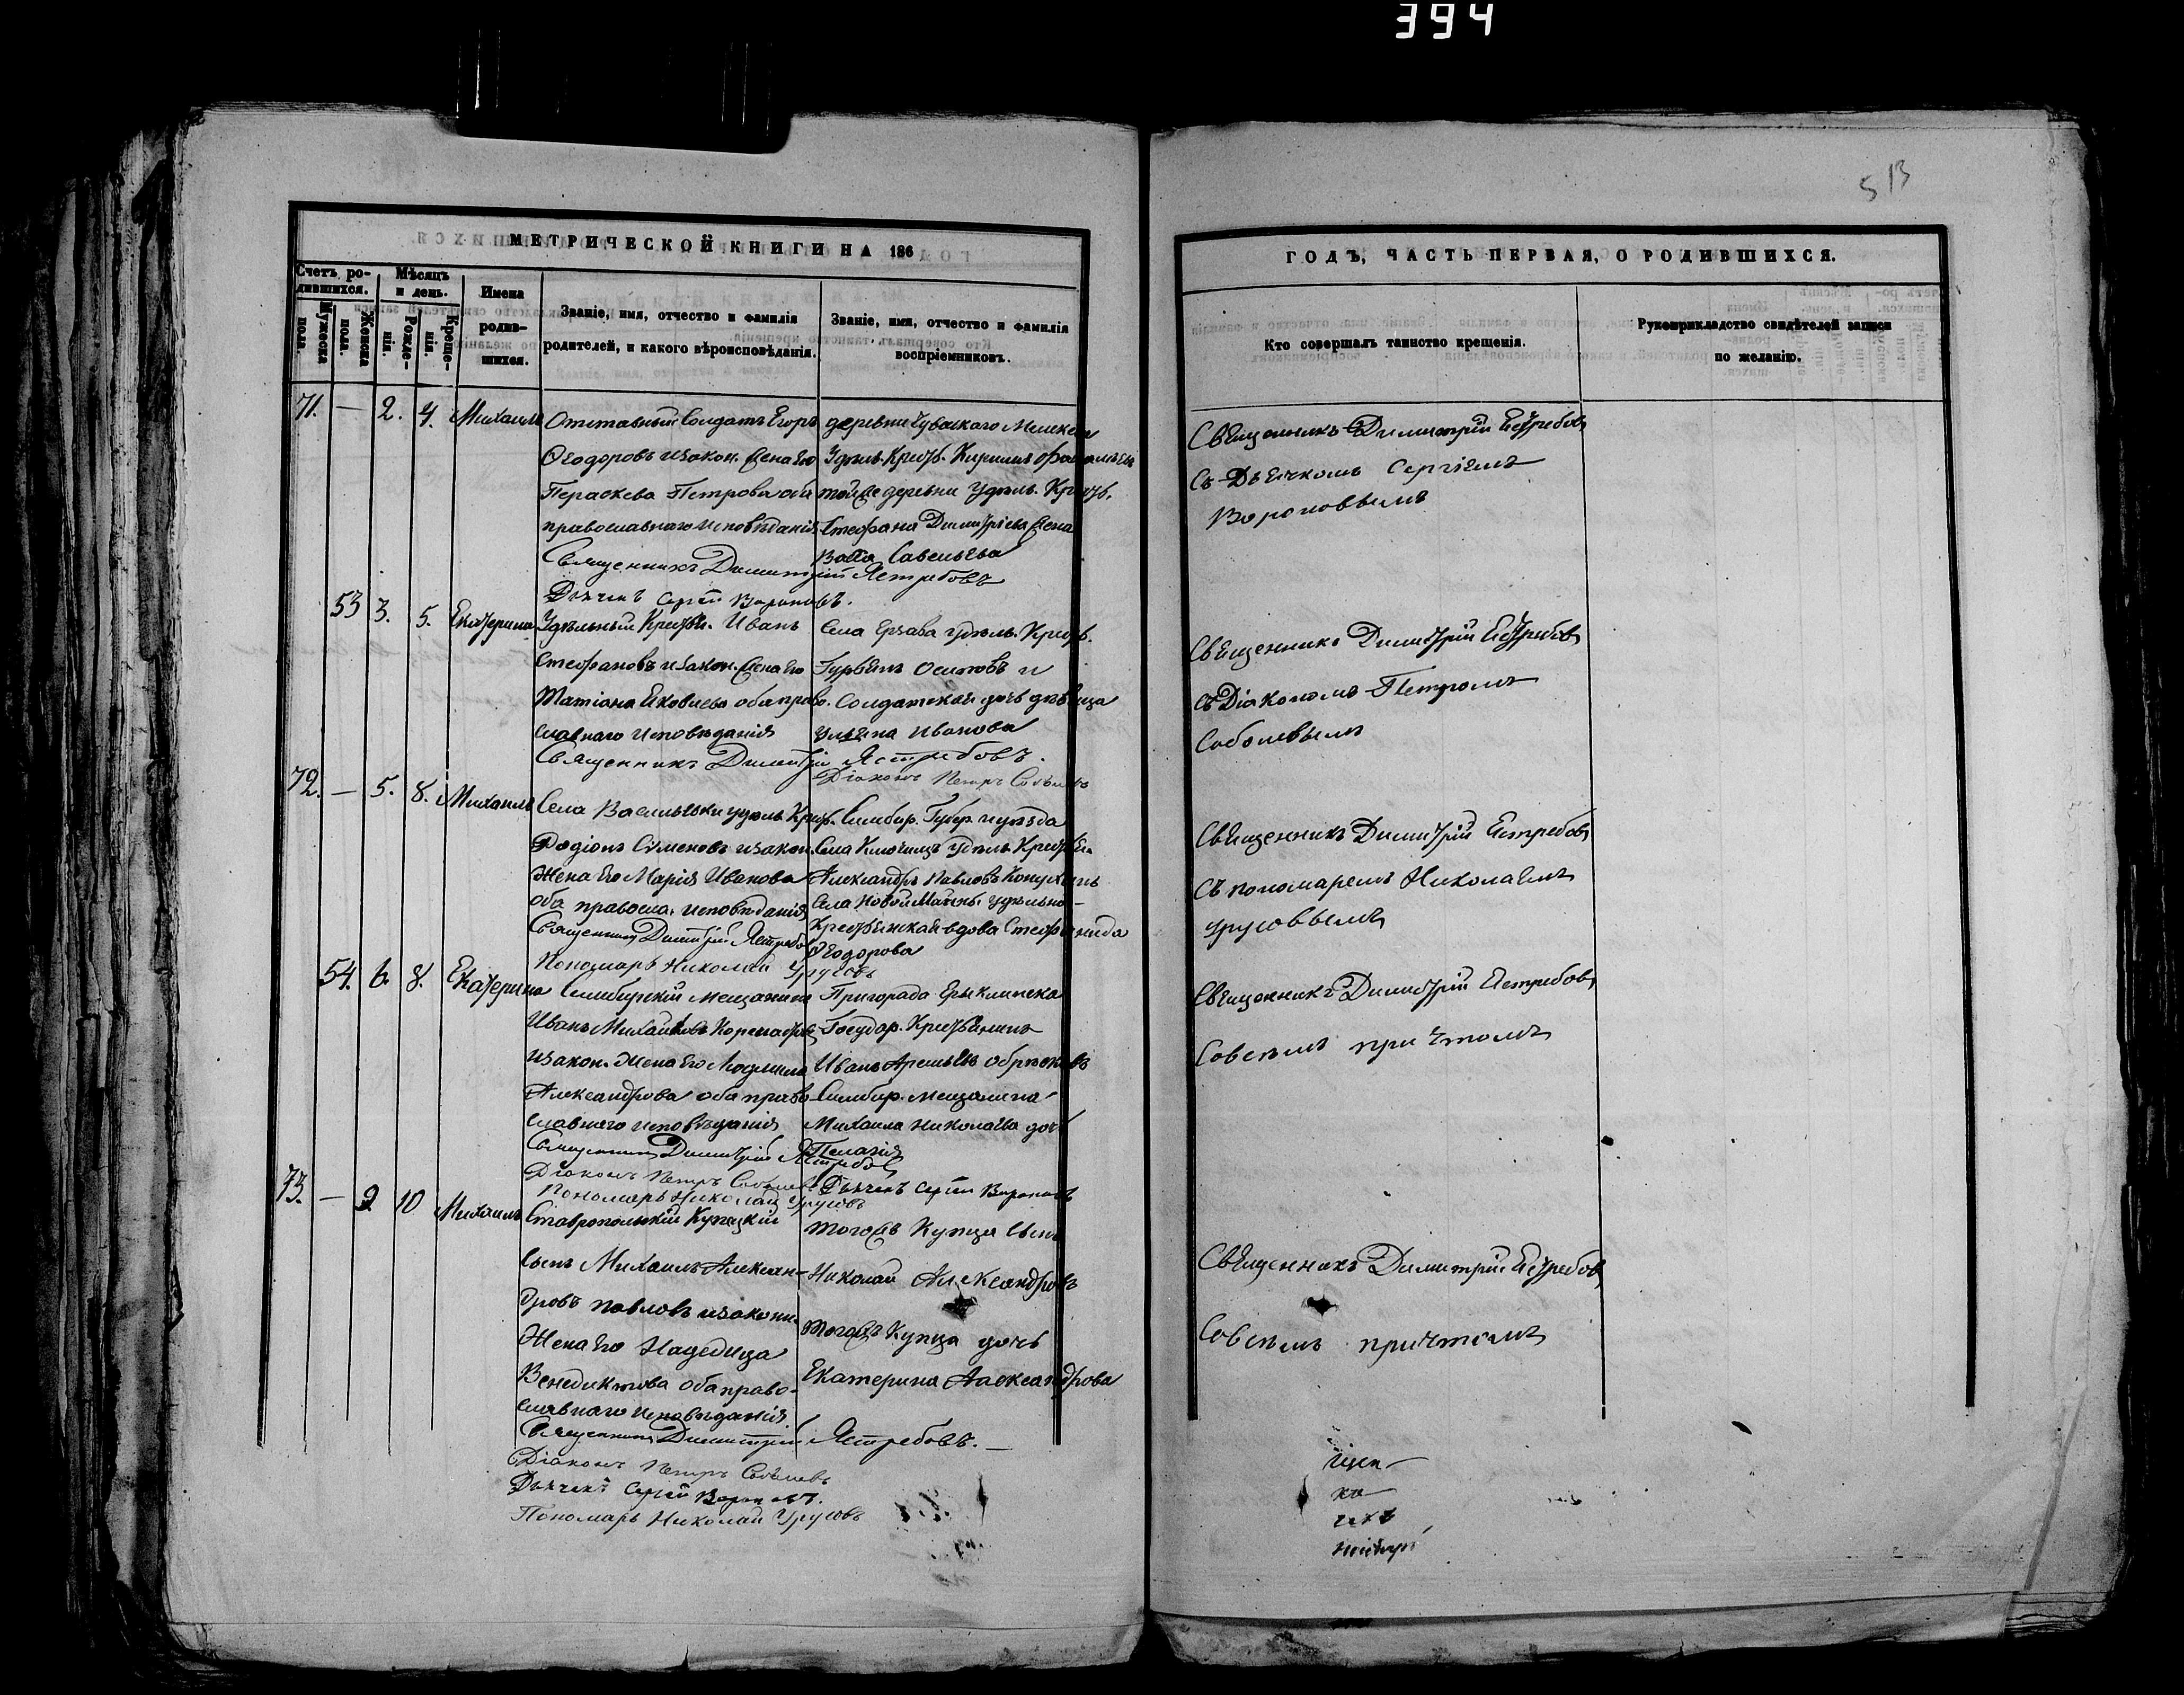 394
513
МЕТРИЧЕСКОЙ КНИГИ НА 186
Счетъ ро-
дившихся.
Мужеска
пола.
Женска
пола.
Мѣсяцъ
и день.
Рожде-
нія.
Креще-
нія.
Имена
родив-
шихся.
Званіе, имя, отчество и фамилія
родителей, и какого вѣроисповѣданія.
Званіе, имя, отчество и фамилія
воспріемниковъ.
71. — 2. 4. Михаилъ
Отставный Солдатъ Егоръ
Ѳеодоровъ изакон. жена его
Параскева Петрова оба
православнаго исповѣданія
деревни Чувскаго Мелекеса
Удѣль. Крест. Кирилъ
тойже деревни Удѣль. Крест.
Стефана Димитріева жена
Васса Савельева
Священникъ Димитрій Ястребовъ
Дьячекъ Сергѣй Вороновъ.
53 3. 5. Екатерина
Удѣльный Крест. Иванъ
Стефановъ изакон. жена его
Татіана Яковлева оба право-
славнаго исповѣданія
Села удѣль. Крест.
Осиповъ и
Солдатская дочь дѣвица
Ульяна Иванова
Священникъ Димитрій Ястребовъ.
Діаконъ Петръ Соболевъ
72. — 5. 8. Михаилъ
Села Васильевки удѣль. Крест.
Родіонъ Сѵменовъ изакон.
Жена его Марія Иванова
оба правосла. исповѣданія
Симбир. Губер. иуѣзда
Села Ключищъ удѣль. Крест.
Александръ Павловъ
Села Новой Майны удѣльно-
Крестьянская вдова Стефанида
Ѳеодорова
Священникъ Димитрій Ястребовъ
Пономарь Николай Урусовъ
54. 6. 8. Екатерина
Симбирскій Мещанинъ
Иванъ Михайловъ
изакон. Жена его Людмила
Александрова оба право-
славнаго исповѣданія
Пригорода Ерыклинска
Государ. Крестьянинъ
Иванъ
Симбир. мещанина
Михаила Николаева дочь
Пелагія
Священникъ Димитрій Ястребовъ
Діаконъ Петръ Соболевъ Дьячекъ Сергѣй Вороновъ
Пономарь Николай Урусовъ
73. — 9 10 Михаилъ
Ставропольскій Купецкій
сынъ Михаилъ Алексан-
дровъ Павловъ изаконн.
Жена его Надежда
Венедиктова оба право-
славнаго исповѣданія.
Тогожъ Купца сынъ
Николай Александровъ
Тогожъ Купца дочь
Екатерина Александрова
Священникъ Димитрій Ястребовъ.—
Діаконъ Петръ Соболевъ
Дьячекъ Сергѣй Вороновъ.
Пономарь Николай Урусовъ
ГОДЪ, ЧАСТЬ ПЕРВАЯ, О РОДИВШИХСЯ.
Кто совершалъ таинство крещенія.
Рукоприкладство свидѣтелей записи
по желанію.
Священникъ Димитрій Ястребовъ
съ Дьячкомъ Сергіемъ
Вороновымъ
Священникъ Димитрій Ястребовъ
съ Діакономъ Петромъ
Соболевымъ
Священникъ Димитрій Ястребовъ
съ пономаремъ Николаемъ
Урусовымъ
Священникъ Димитрій Ястребовъ
совсѣмъ причтомъ
Священникъ Димитрій Ястребовъ
совсѣмъ причтомъ